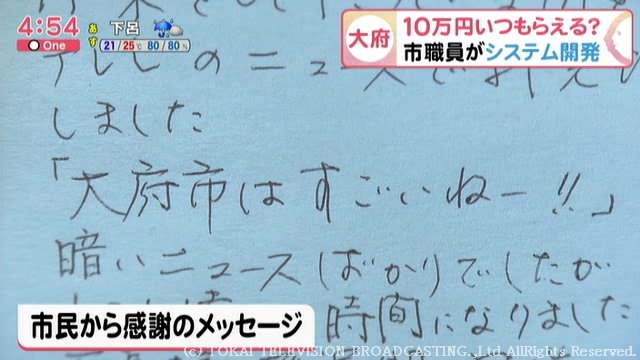 4:54
One
あす
下呂
21/25℃
80/80%
大府
10万円いつもらえる?
市職員がシステム開発
テレビのニュースで
しました
「大府市はすごいねー!!」
暗いニュースばかりでしたが
時間になりました
市民から感謝のメッセージ
(C) TOKAI TELEVISION BROADCASTING.,Ltd AllRights Reserved.